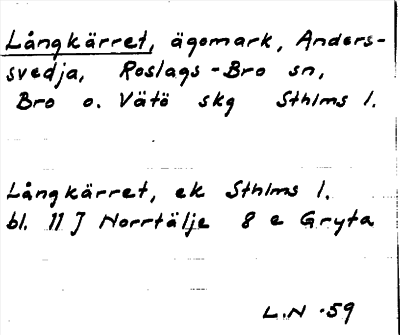 Långkärret, ägomark, Anders-
svedja, Roslags-Bro sn,
Bro o. Vätö skg Sthlms l.
Långkärret, ek Sthlms l.
bl. 11 J Norrtälje 8 e Gryta
L.N -59